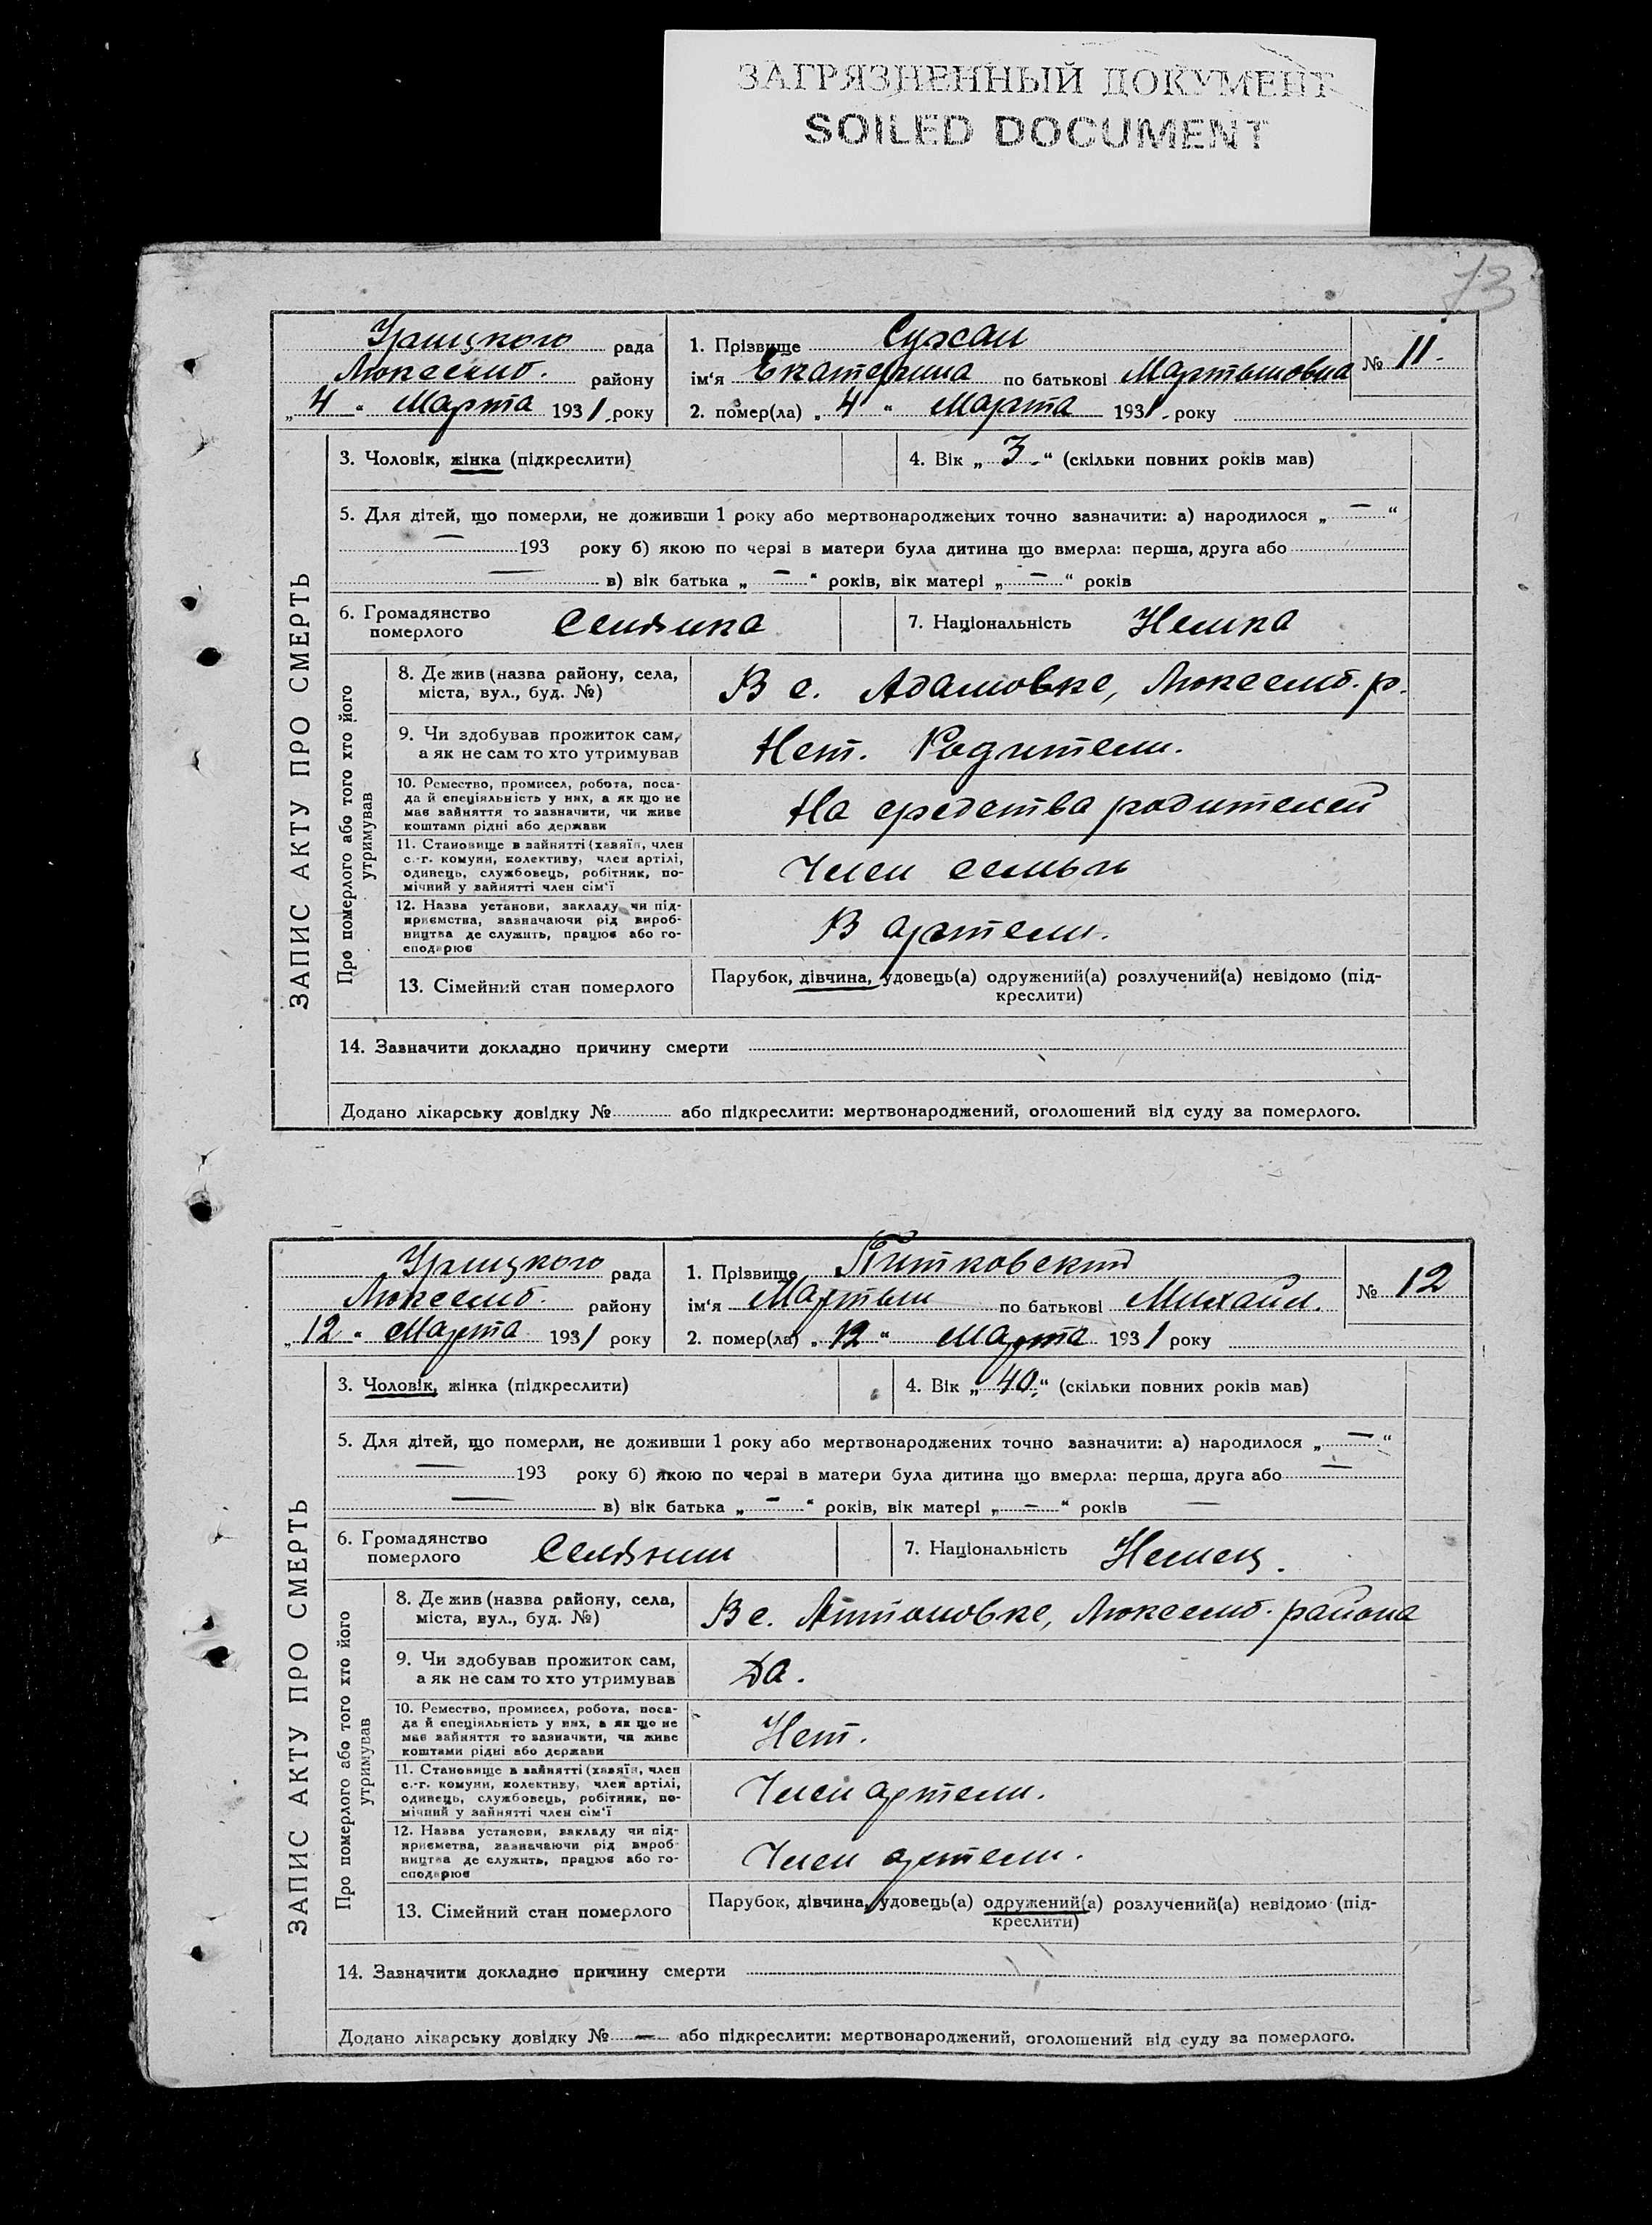 ЗАГРЯЗНЕННЫЙ ДОКУМЕНТ
SOILED DOCUMENT
73
Урицкого рада
Люксемб. району
„4“ Марта 1931 року
1. Прізвище Сухан
ім‘я Екатерина по батькові Мартыновна
2. помер(ла) „4“ Марта 1931 року
№ 11.
ЗАПИС АКТУ ПРО СМЕРТЬ
3. Чоловік, жінка (підкреслити)
4. Вік „3“ (скільки повних років мав)
5. Для дітей, що померли, не доживши 1 року або мертвонароджених точно зазначити: а) народилося „ — “
— 193 року б) якою по черзі в матери була дитина що вмерла: перша, друга або
— в) вік батька „ — “ років, вік матері „ — “ років
6. Громадянство померлого Селянка
7. Національність Немка
Про померлого або того хто його утримував
8. Де жив (назва району, села,
міста, вул., буд. №)
В с. Адамовке, Люксемб. р.
9. Чи здобував прожиток сам,
а як не сам то хто утримував
Нет. Родители.
10. Ремество, промисел, робота, поса-
да й специяльність у них, а як що не
має зайняття то зазначити, чи живе
коштами рідні або держави
На средства родителей
11. Становище в зайнятті (хазяїн, член
с.-г. комуни, колективу, член артілі,
одинець, службовець, робітник, по-
мічний у зайнятті член сім‘ї
Член семьи
12. Назва установи, закладу чи під-
приємства, зазначаючи рід вироб-
ництва де служить, працює або го-
сподарює
В артели.
13. Сімейний стан померлого
Парубок, дівчина, удовець(а) одружений(а) розлучений(а) невідомо (під-
креслити)
14. Зазначити докладно причину смерти
Додано лікарську довідку № або підкреслити: мертвонароджений, оголошений від суду за померлого.
Урицкого рада
Люксемб. району
„12“ Марта 1931 року
1. Прізвище Питковский
ім‘я Мартын по батькові Михайл.
2. помер(ла) „12“ Марта 1931 року
№ 12
ЗАПИС АКТУ ПРО СМЕРТЬ
3. Чоловік, жінка (підкреслити)
4. Вік „40“ (скільки повних років мав)
5. Для дітей, що померли, не доживши 1 року або мертвонароджених точно зазначити: а) народилося „ — “
— 193 року б) якою по черзі в матери була дитина що вмерла: перша, друга або —
— в) вік батька „ — “ років, вік матері „ — “ років —
6. Громадянство померлого Селянин
7. Національність Немец.
Про померлого або того хто його утримував
8. Де жив (назва району, села,
міста, вул., буд. №)
В с. Антоновке, Люксемб. района
9. Чи здобував прожиток сам,
а як не сам то хто утримував
Да.
10. Ремество, промисел, робота, поса-
да й специяльність у них, а як що не
має зайняття то зазначити, чи живе
коштами рідні або держави
Нет.
11. Становище в зайнятті (хазяїн, член
с.-г. комуни, колективу, член артілі,
одинець, службовець, робітник, по-
мічний у зайнятті член сім‘ї
Член артели.
12. Назва установи, закладу чи під-
приємства, зазначаючи рід вироб-
ництва де служить, працює або го-
сподарює
Член артели.
13. Сімейний стан померлого
Парубок, дівчина, удовець(а) одружений(а) розлучений(а) невідомо (під-
креслити)
14. Зазначити докладно причину смерти
Додано лікарську довідку № — або підкреслити: мертвонароджений, оголошений від суду за померлого.